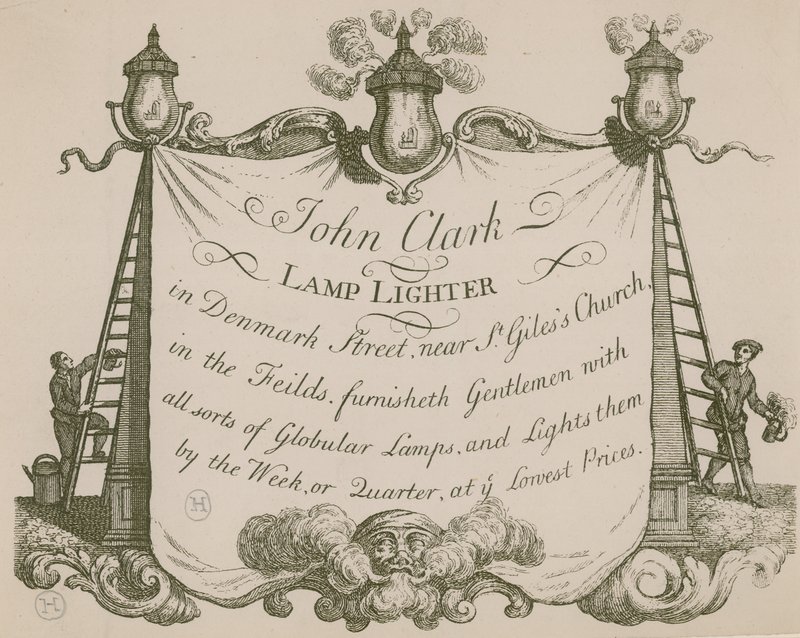 John Clark
LAMP LIGHTER
in Denmark Street, near St. Giles's Church,
in the Feilds. furnisheth Gentlemen with
all sorts of Globular Lamps, and Lights them
by the Week, or Quarter, at ye Lowest Prices.
H
H